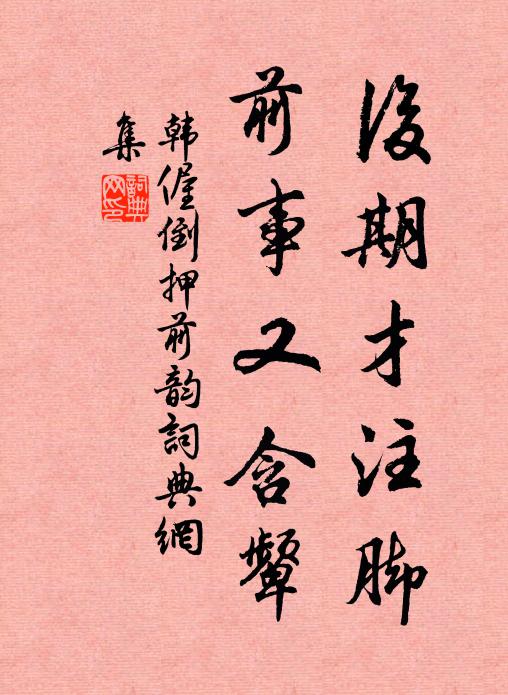 後期才注脚
前事又含顰
韓偓倒押前韵詞典網
集
詞典网印